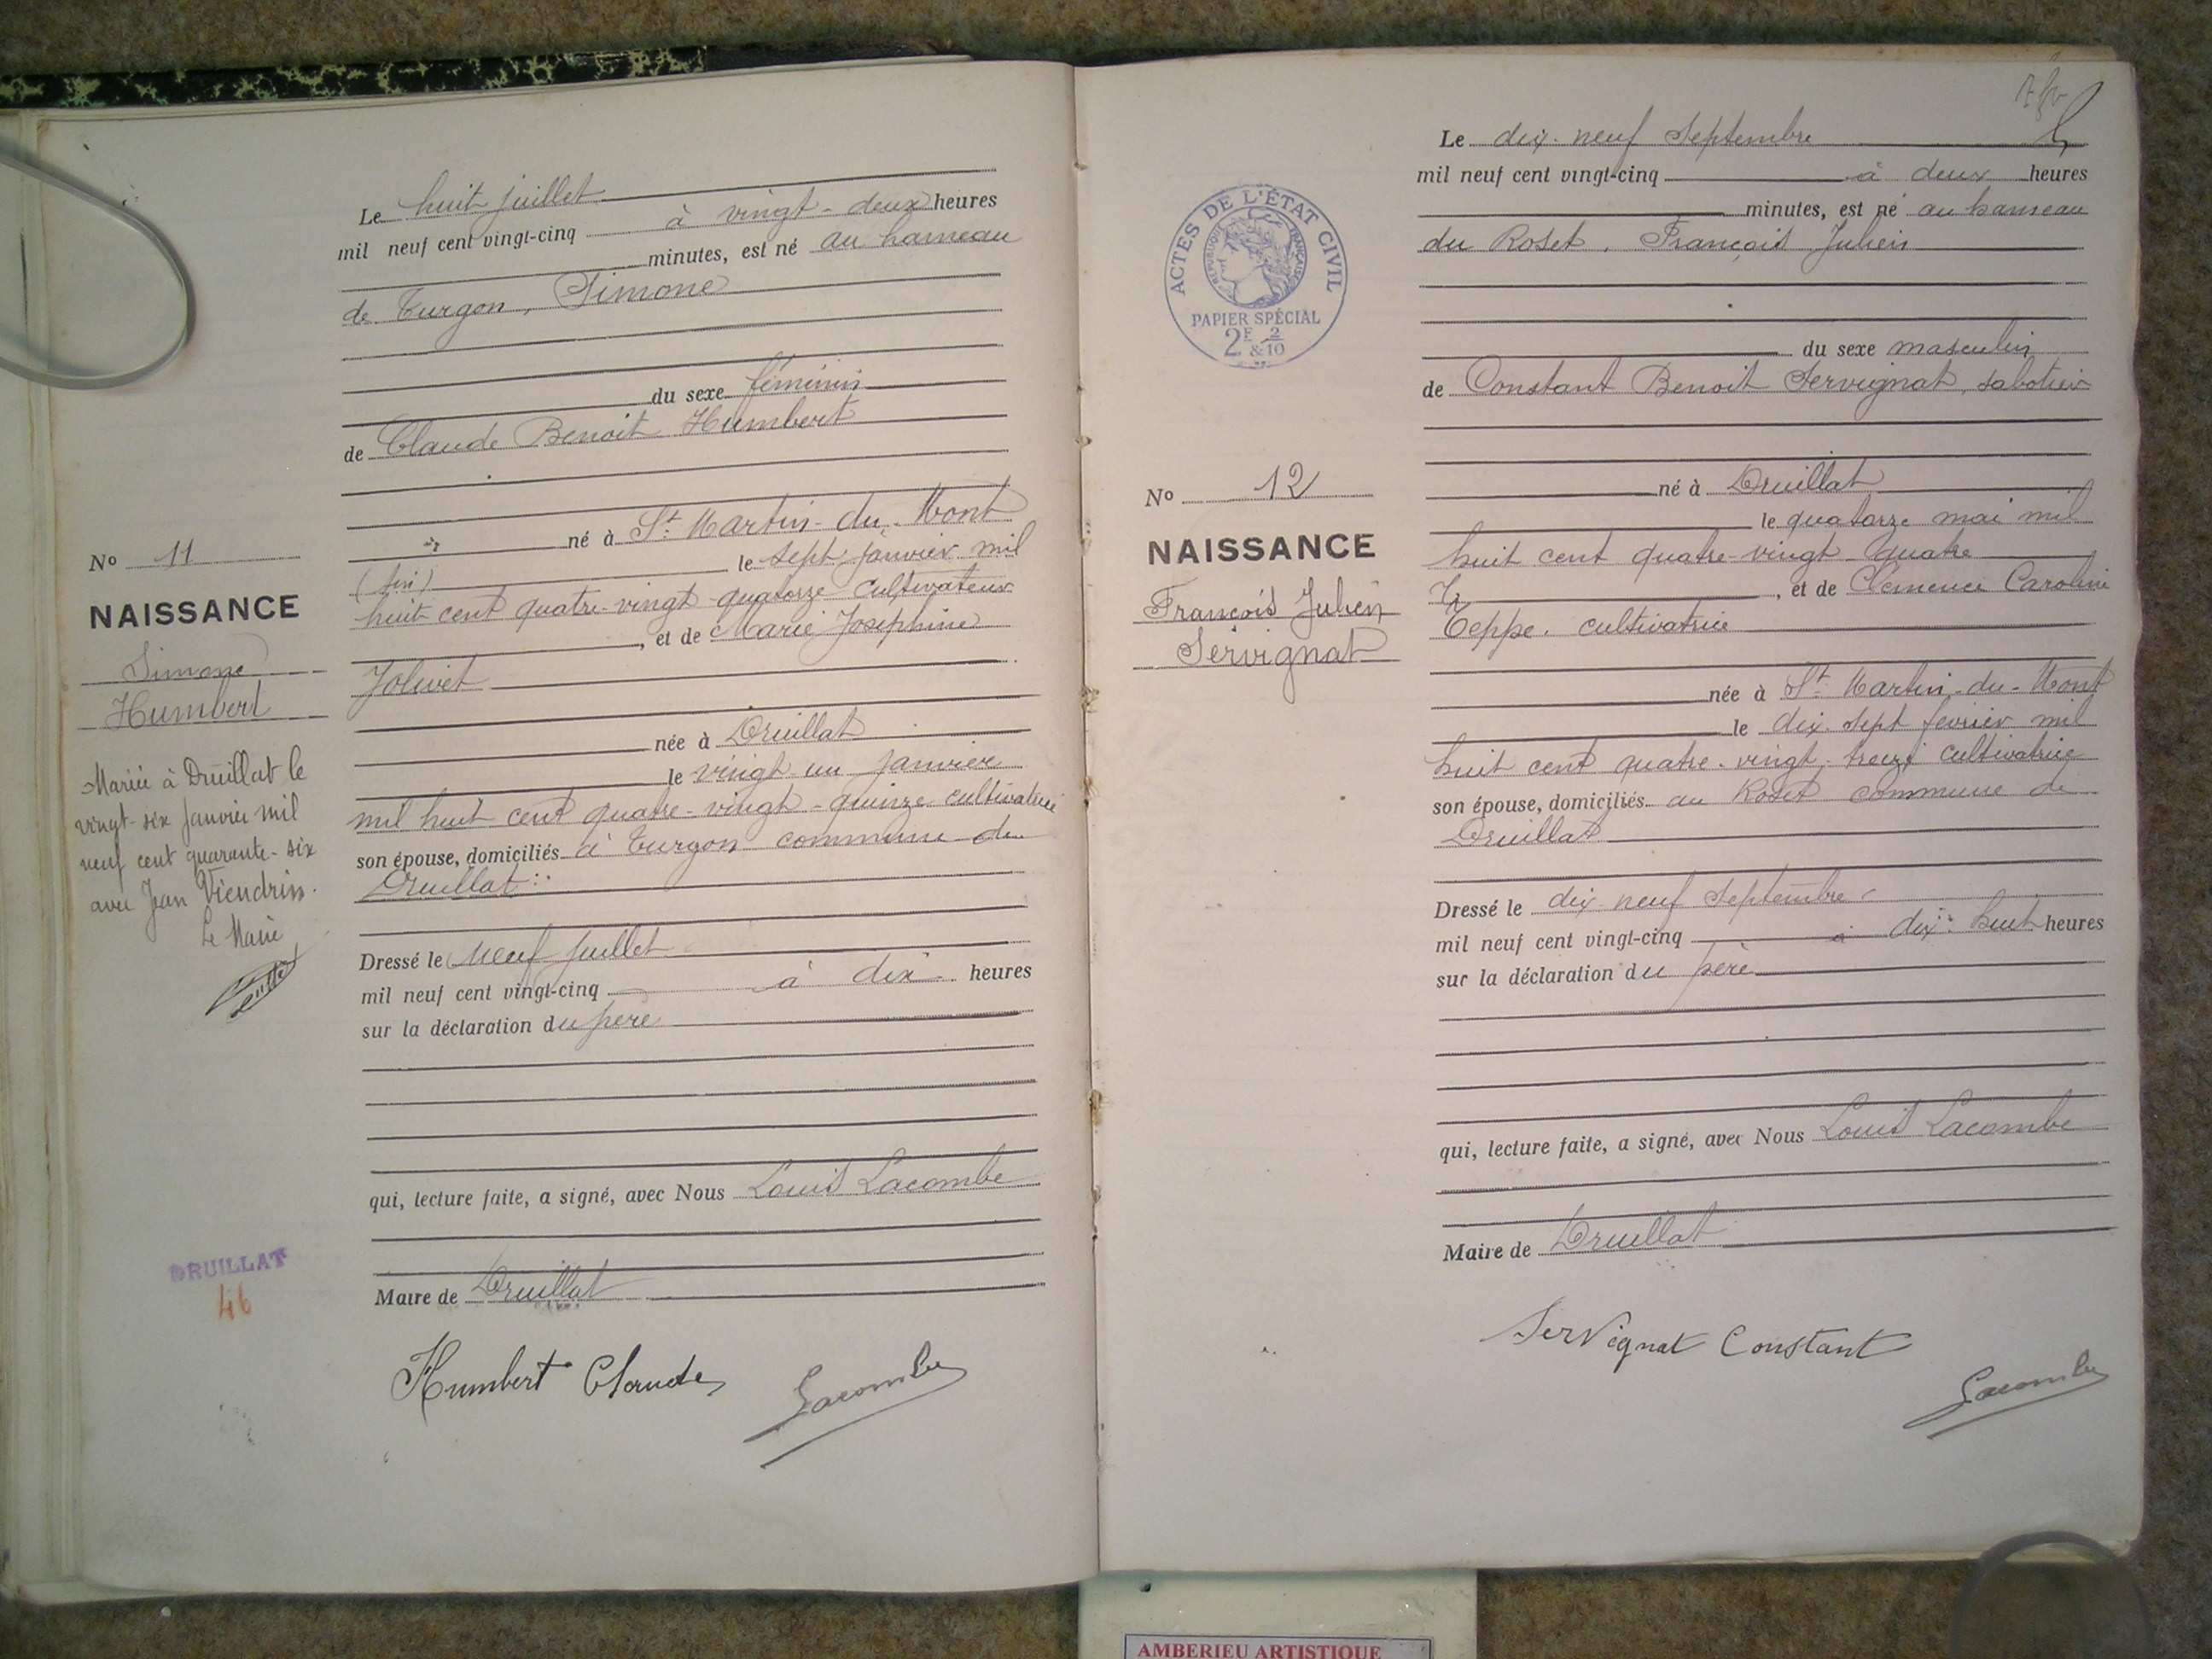 Le huit juillet
mil neuf cent vingt-cinq à vingt-deux heures
minutes, est né au hameau
de Turgon, Simone
du sexe féminin
de Claude Benoit Humbert
né à St Martin-du-Mont
le sept janvier mil
huit cent quatre-vingt-quatorze cultivateur
, et de Marie Joséphine
Jolivet
née à Druillat
le vingt-un janvier
mil huit cent quatre-vingt-quinze cultivatrice
son épouse, domiciliés à Turgon commune de
Druillat
Dressé le neuf juillet
mil neuf cent vingt-cinq à dix heures
sur la déclaration du père
qui, lecture faite, a signé, avec Nous Louis Lacombe
Maire de Druillat
Humbert Claude
Lacombe
No 11
NAISSANCE
Simone
Humbert
Mariée à Druillat le
vingt-six Janvier mil
neuf cent quarante-six
avec Jean Viendrin.
Le Maire
DRUILLAT
46
Le dix-neuf Septembre
mil neuf cent vingt-cinq à deux heures
minutes, est né au hameau
du Roset, François Julien
du sexe masculin
de Constant Benoit Servignat, sabotier
né à Druillat
le quatorze mai mil
huit cent quatre-vingt-quatre
, et de Clémence Caroline
Teppe, cultivatrice
née à St Martin-du-Mont
le dix-sept février mil
huit cent quatre-vingt-treize cultivatrice
son épouse, domiciliés au Roset commune de
Druillat
Dressé le dix-neuf Septembre
mil neuf cent vingt-cinq à dix-huit heures
sur la déclaration du père
qui, lecture faite, a signé, avec Nous Louis Lacombe
Maire de Druillat
Servignat Constant
Lacombe
ACTES DE L'ÉTAT CIVIL
RÉPUBLIQUE FRANÇAISE
PAPIER SPÉCIAL
2F & 2/10
No 12
NAISSANCE
François Julien
Servignat
AMBERIEU ARTISTIQUE